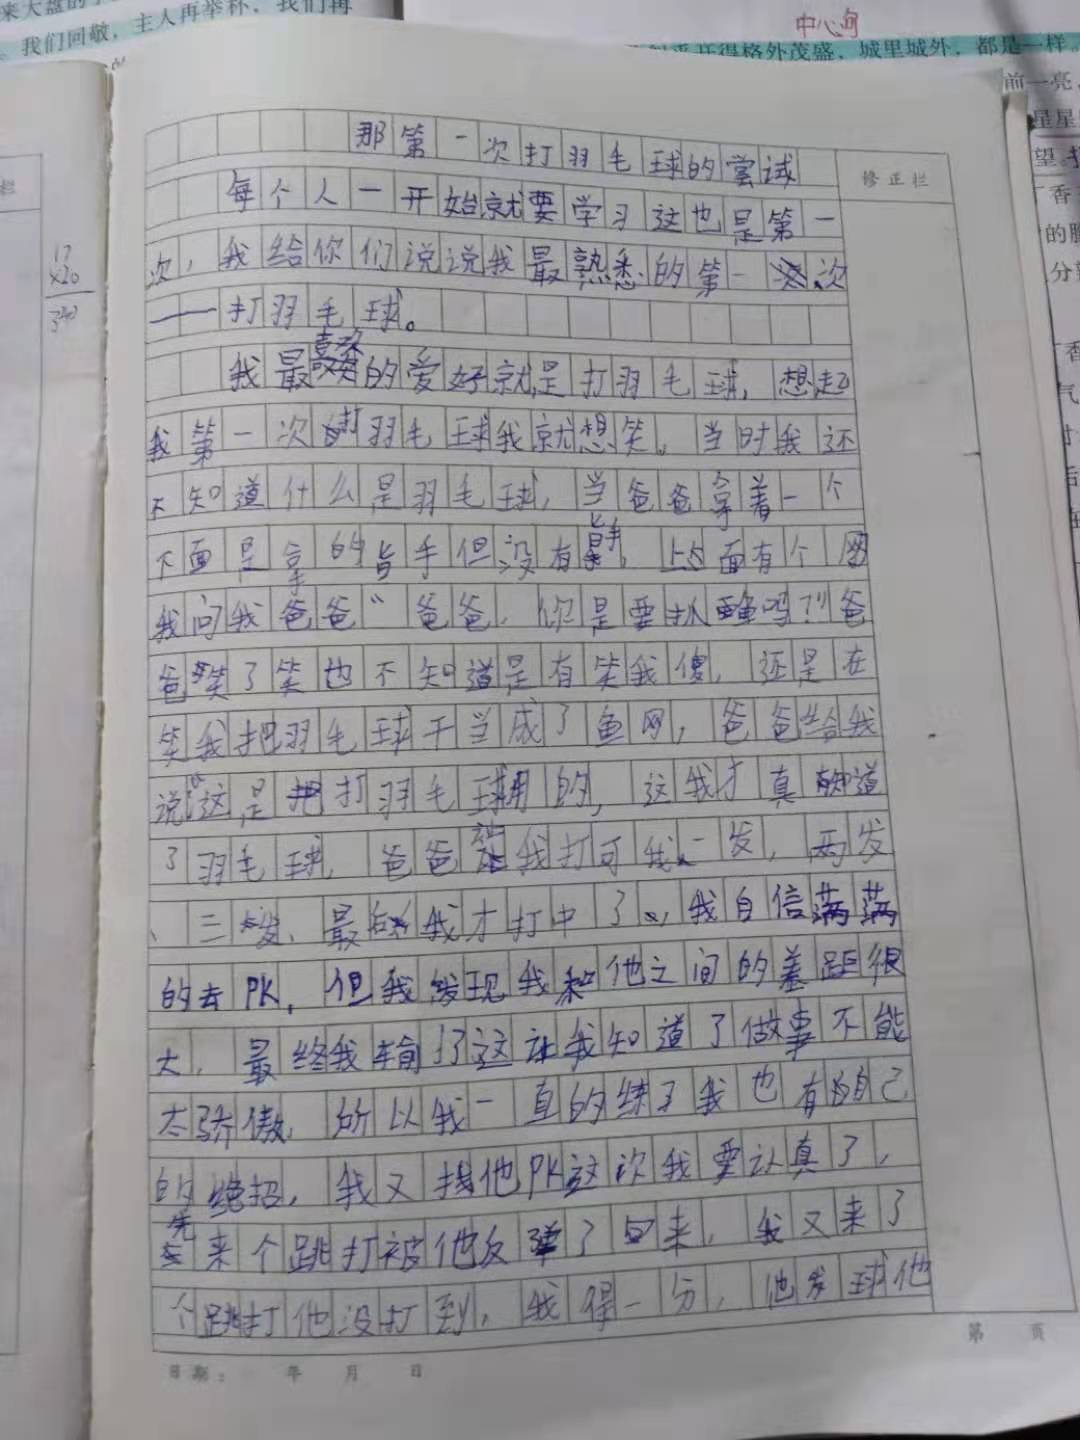 来大盘的
我们回敬，主人再举杯，我们再
中心句
开得格外茂盛，城里城外，都是一样。
前一亮，
星星
望。
香
的
分
栏
17
×20
340
那第一次打羽毛球的尝试
修正栏
每个人一开始就要学习这也是第一
次，我给你们说说我最熟悉的第一次
——打羽毛球。
我最喜欢的爱好就是打羽毛球，想起
我第一次打羽毛球我就想笑。当时我还
不知道什么是羽毛球，当爸爸拿着一个
下面是拿的手但没有，上面有个网
我问我爸爸“爸爸，你是要抓鱼吗？”爸
爸笑了笑也不知道是有笑我傻，还是在
笑我把羽毛球干当成了鱼网，爸爸给我
说这是打羽毛球用的，这我才真知道
了羽毛球，爸爸我打可我一发，两发
、三发、最后我才打中了，我自信满满
的去PK，但我发现我和他之间的差距很
大，最终我输了这让我知道了做事不能
太骄傲，所以我一直的练习我也有自己
的绝招，我又找他PK这次我要认真了，
先来个跳打被他反弹了回来，我又来了
个跳打他没打到，我得一分，他发球他
第 页
日期： 年 月 日